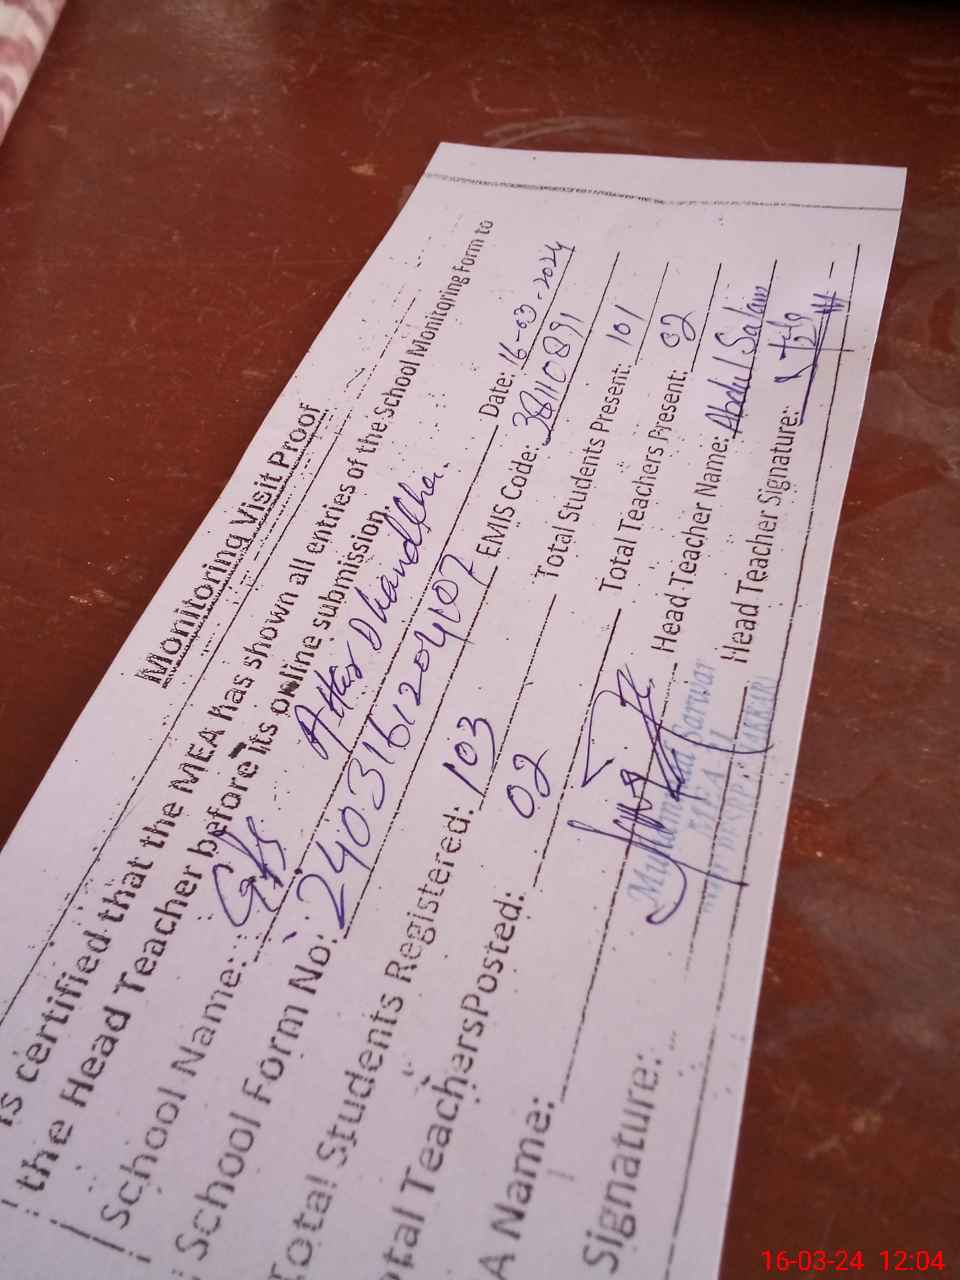 Monitoring Visit Proof
is certified that the MEA has shown all entries of the School Monitoring Form to
the Head Teacher before its online submission.
School Name: GPS Attas Dhandhha. Date: 16-03-2024
School Form No: 2403161204107 EMIS Code: 38110891
Total Students Registered: 103 Total Students Present: 101
otal TeachersPosted: 02 Total Teachers Present: 02
A Name: Head Teacher Name: Abdul Salam
Signature: Head Teacher Signature:
Muhammad Sarwar
MEA
16-03-24 12:04